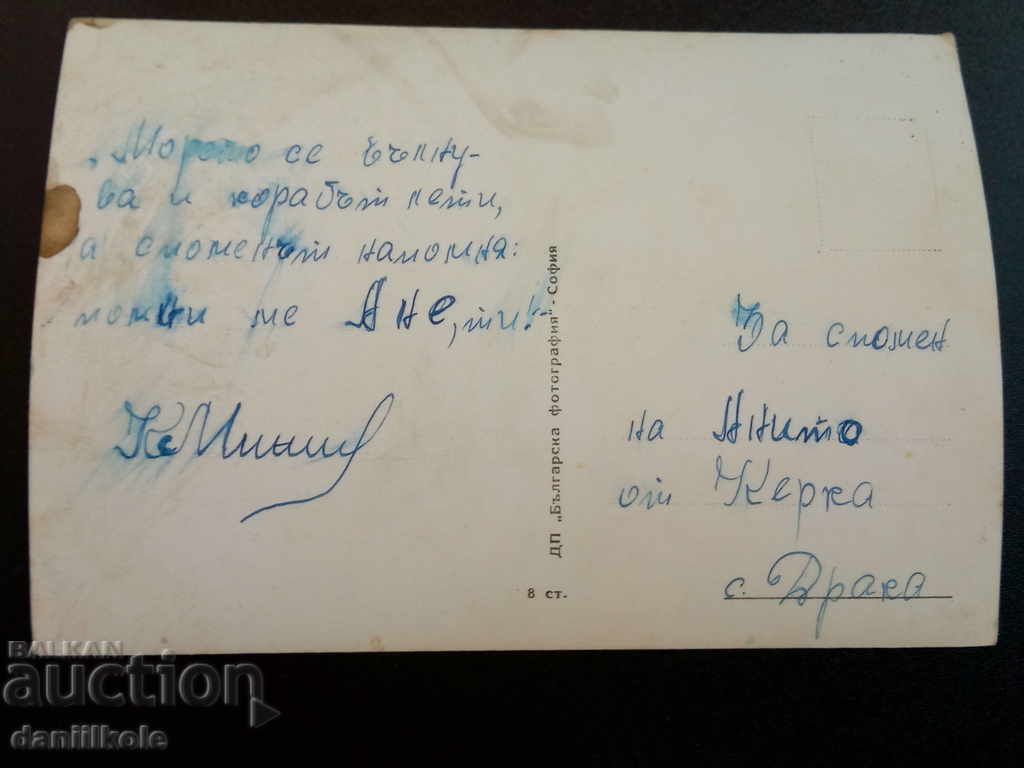 „Морето се вълну-
ва и корабът лети,
а споменът напомня:
помни ме Ане, ти!"
За спомен
на Анито
от Керка
с. Драка
ДП „Българска фотография" - София
8 ст.
BALKAN
auction
daniilkole